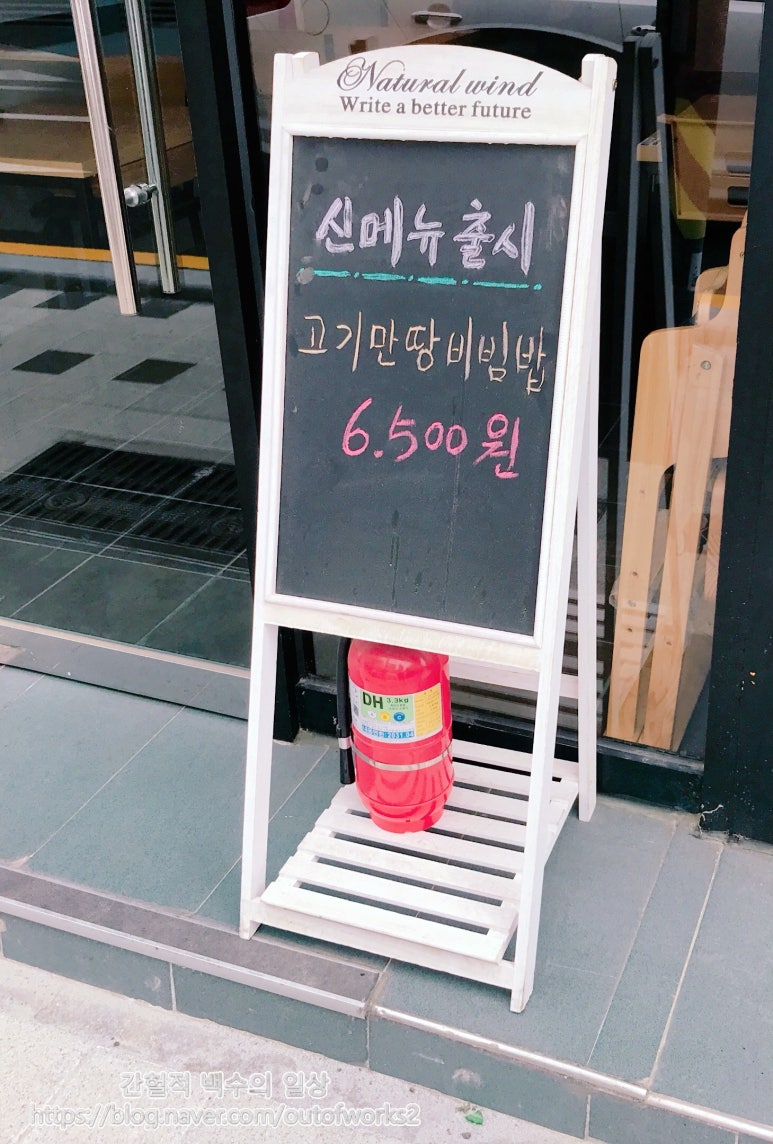 Natural wind
Write a better future
신메뉴출시
고기만땅비빔밥
6.500원
DH 3.3kg
2031.04
간헐적 백수의 일상
https://blog.naver.com/outofworks2